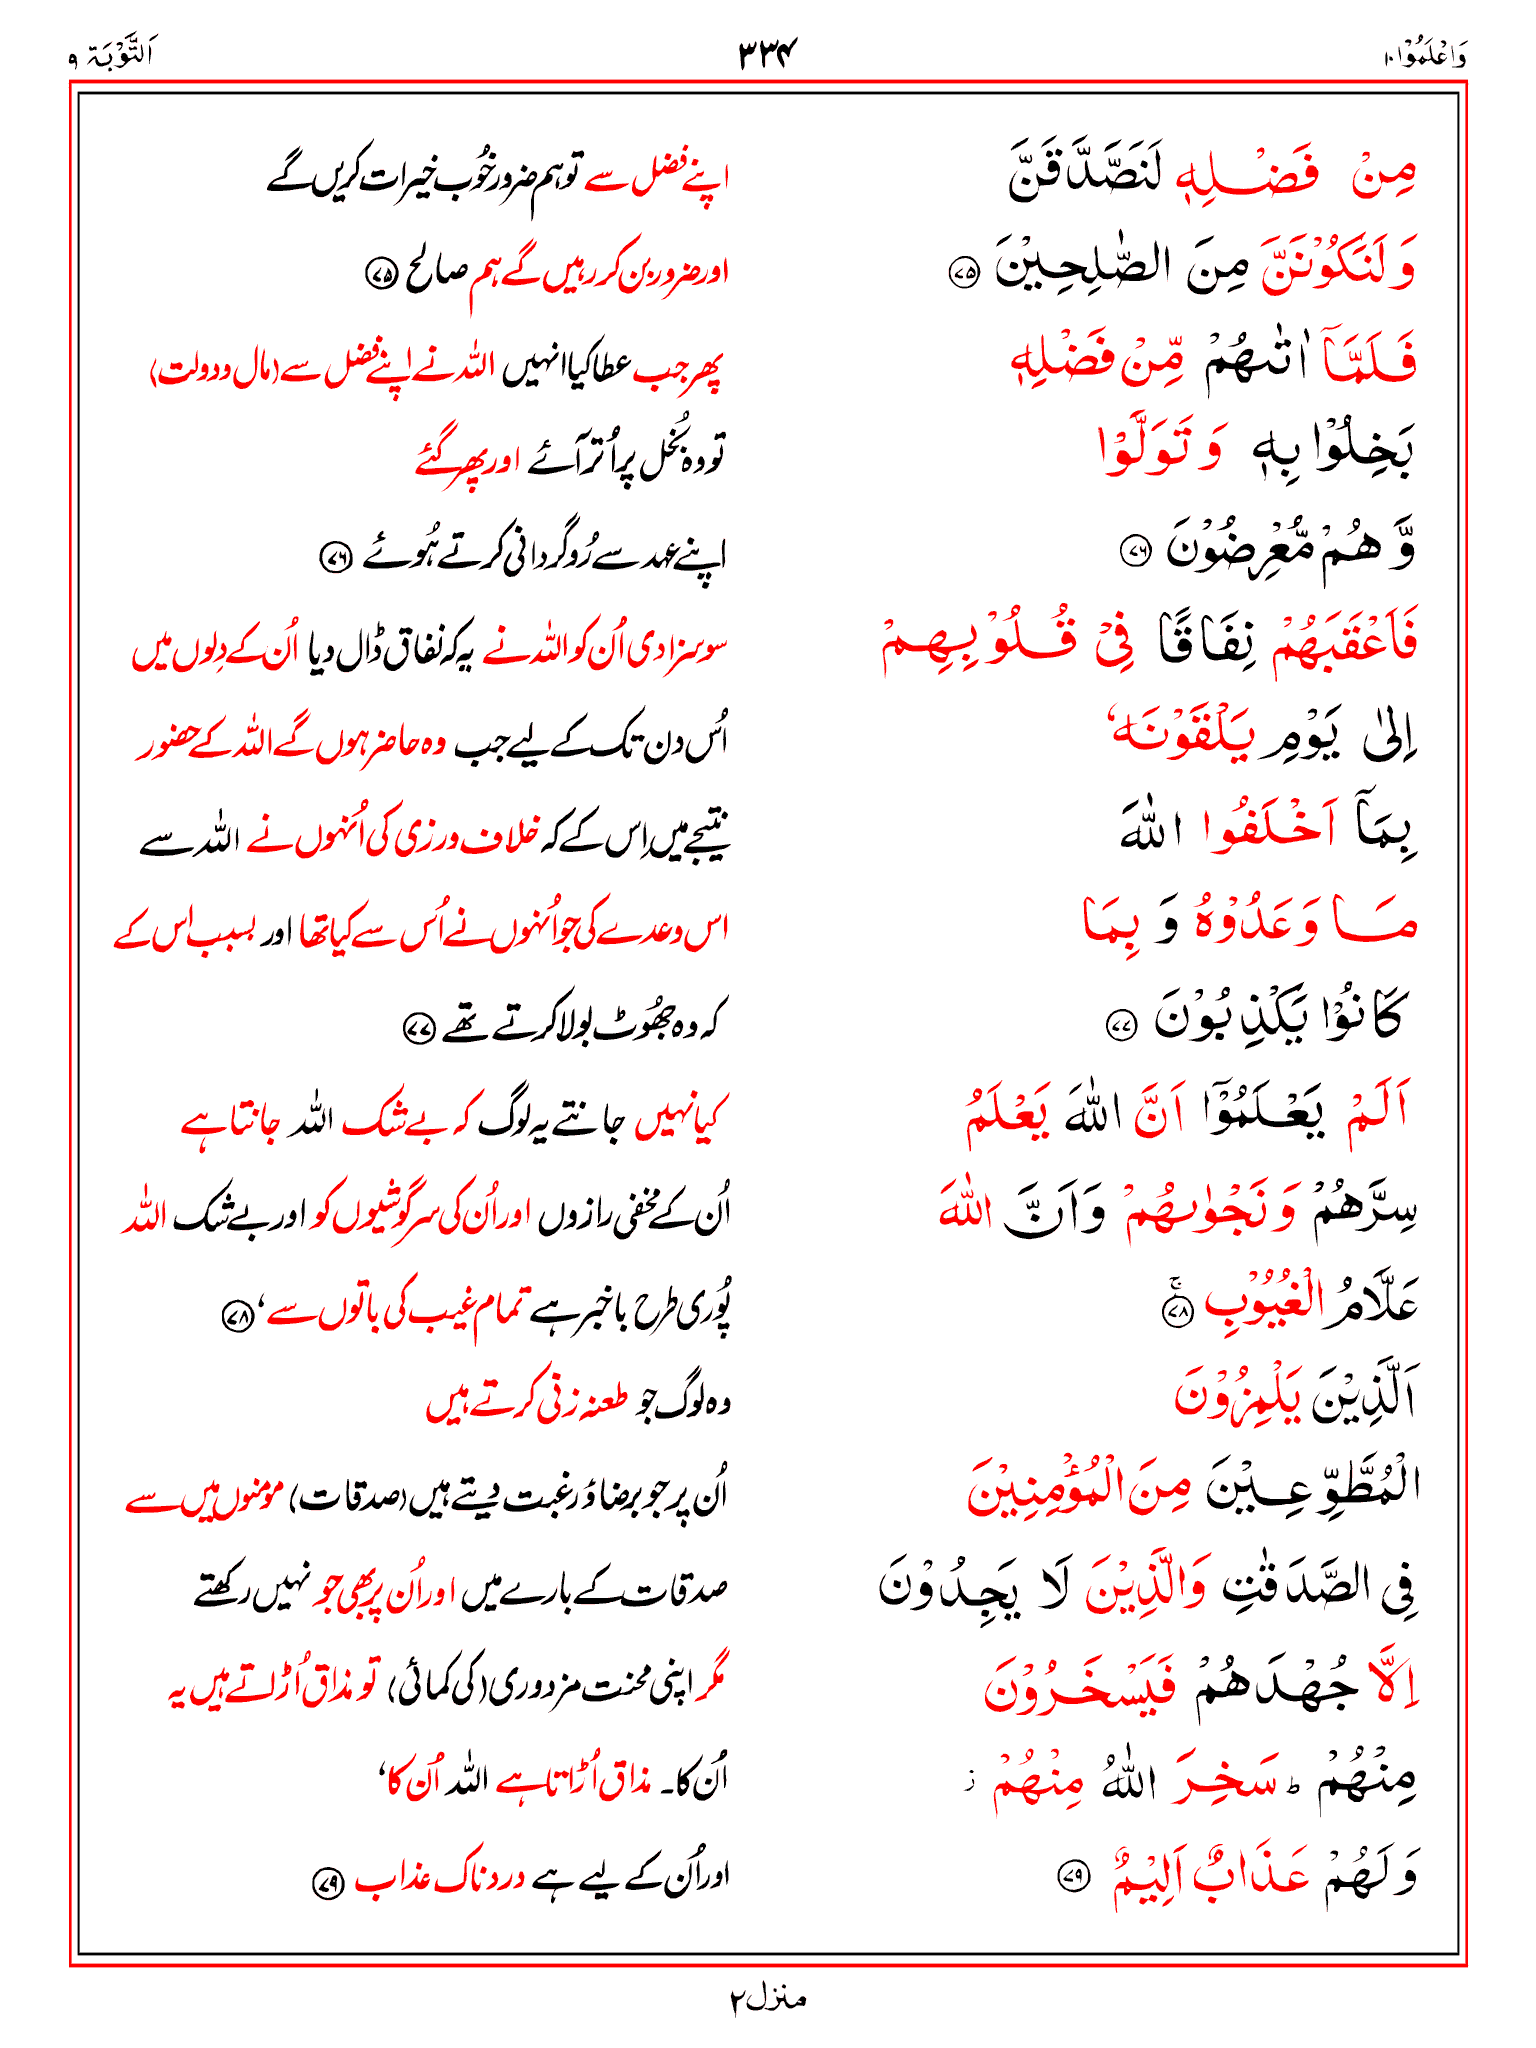 وَاعْلَمُوْا ۱۰ ۳۳۴ اَلتَّوْبَۃ ۹
مِنْ فَضْلِهٖ لَنَصَّدَّقَنَّ اپنے فضل سے تو ہم ضرور خُوب خیرات کریں گے
وَلَنَكُوْنَنَّ مِنَ الصّٰلِحِيْنَ ﴿۷۵﴾ اور ضرور بن کر رہیں گے ہم صالح ﴿۷۵﴾
فَلَمَّاۤ اٰتٰىهُمْ مِّنْ فَضْلِهٖ پھر جب عطا کیا انہیں اللہ نے اپنے فضل سے (مال و دولت)
بَخِلُوْا بِهٖ وَتَوَلَّوْا تو وہ بُخل پر اُتر آئے اور پھر گئے
وَّهُمْ مُّعْرِضُوْنَ ﴿۷۶﴾ اپنے عہد سے رُوگردانی کرتے ہُوئے ﴿۷۶﴾
فَاَعْقَبَهُمْ نِفَاقًا فِيْ قُلُوْبِهِمْ سو سزا دی اُن کو اللہ نے یہ کہ نفاق ڈال دیا اُن کے دِلوں میں
اِلٰى يَوْمِ يَلْقَوْنَهٗ اُس دن تک کے لیے جب وہ حاضر ہوں گے اللہ کے حضور
بِمَاۤ اَخْلَفُوا اللّٰهَ نتیجے میں اِس کے کہ خلاف ورزی کی اُنہوں نے اللہ سے
مَا وَعَدُوْهُ وَبِمَا اس وعدے کی جو اُنہوں نے اُس سے کیا تھا اور بسبب اس کے
كَانُوْا يَكْذِبُوْنَ ﴿۷۷﴾ کہ وہ جھُوٹ بولا کرتے تھے ﴿۷۷﴾
اَلَمْ يَعْلَمُوْۤا اَنَّ اللّٰهَ يَعْلَمُ کیا نہیں جانتے یہ لوگ کہ بے شک اللہ جانتا ہے
سِرَّهُمْ وَنَجْوٰىهُمْ وَاَنَّ اللّٰهَ اُن کے مخفی رازوں اور اُن کی سرگوشیوں کو اور بے شک اللہ
عَلَّامُ الْغُيُوْبِ ۚ﴿۷۸﴾ پُوری طرح باخبر ہے تمام غیب کی باتوں سے‘ ﴿۷۸﴾
اَلَّذِيْنَ يَلْمِزُوْنَ وہ لوگ جو طعنہ زنی کرتے ہیں
الْمُطَّوِّعِيْنَ مِنَ الْمُؤْمِنِيْنَ اُن پر جو برضا و رغبت دیتے ہیں (صدقات) مومنوں میں سے
فِى الصَّدَقٰتِ وَالَّذِيْنَ لَا يَجِدُوْنَ صدقات کے بارے میں اور اُن پر بھی جو نہیں رکھتے
اِلَّا جُهْدَهُمْ فَيَسْخَرُوْنَ مگر اپنی محنت مزدوری (کی کمائی) تو مذاق اُڑاتے ہیں یہ
مِنْهُمْ ؕ سَخِرَ اللّٰهُ مِنْهُمْ ز اُن کا۔ مذاق اُڑاتا ہے اللہ اُن کا‘
وَلَهُمْ عَذَابٌ اَلِيْمٌ ﴿۷۹﴾ اور اُن کے لیے ہے دردناک عذاب ﴿۷۹﴾
منزل ۲